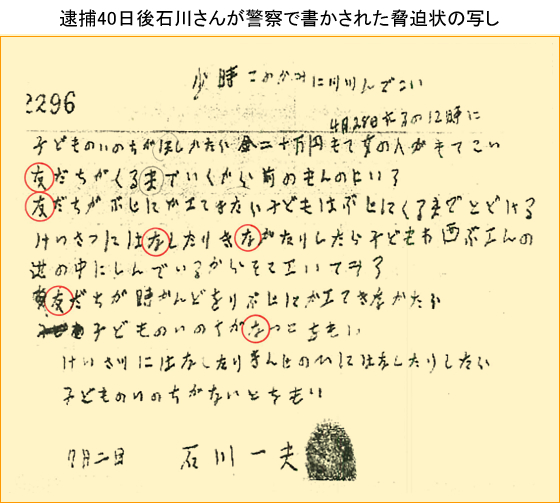 逮捕40日後石川さんが警察で書かされた脅迫状の写し
少時 このかみにツツんでこい
2296
4月28日 の12時に
子どものいのちがほしかたら金二十万円もて女の人がもてこい
友だちがくるまでいくから前のもんのといろ
友だちがぶじにかエてきたら子どもはぶじにくるまでとどける
けいさつにはなしたりき なかたりしたら子どもわ西ぶエんの
池の中にしんでいるからそこエいてみろ
友だちが時かんどをりぶじにかエてきなかたら
子どものいのちがないとおもい
けいさツにはなしたりきんじょの人にはなしたりしたら
子どものいのちがないとおもい
7月二日 石川一夫